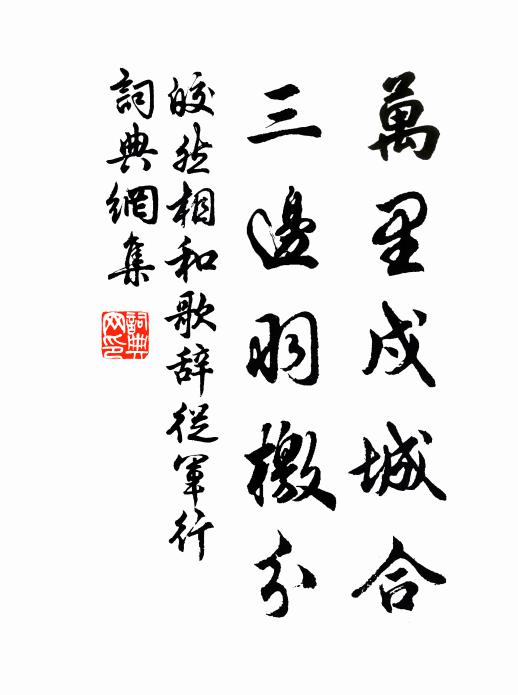 萬里戍城合
三邊羽檄分
皎然相和歌辞從軍行
詞典網集
詞典网印